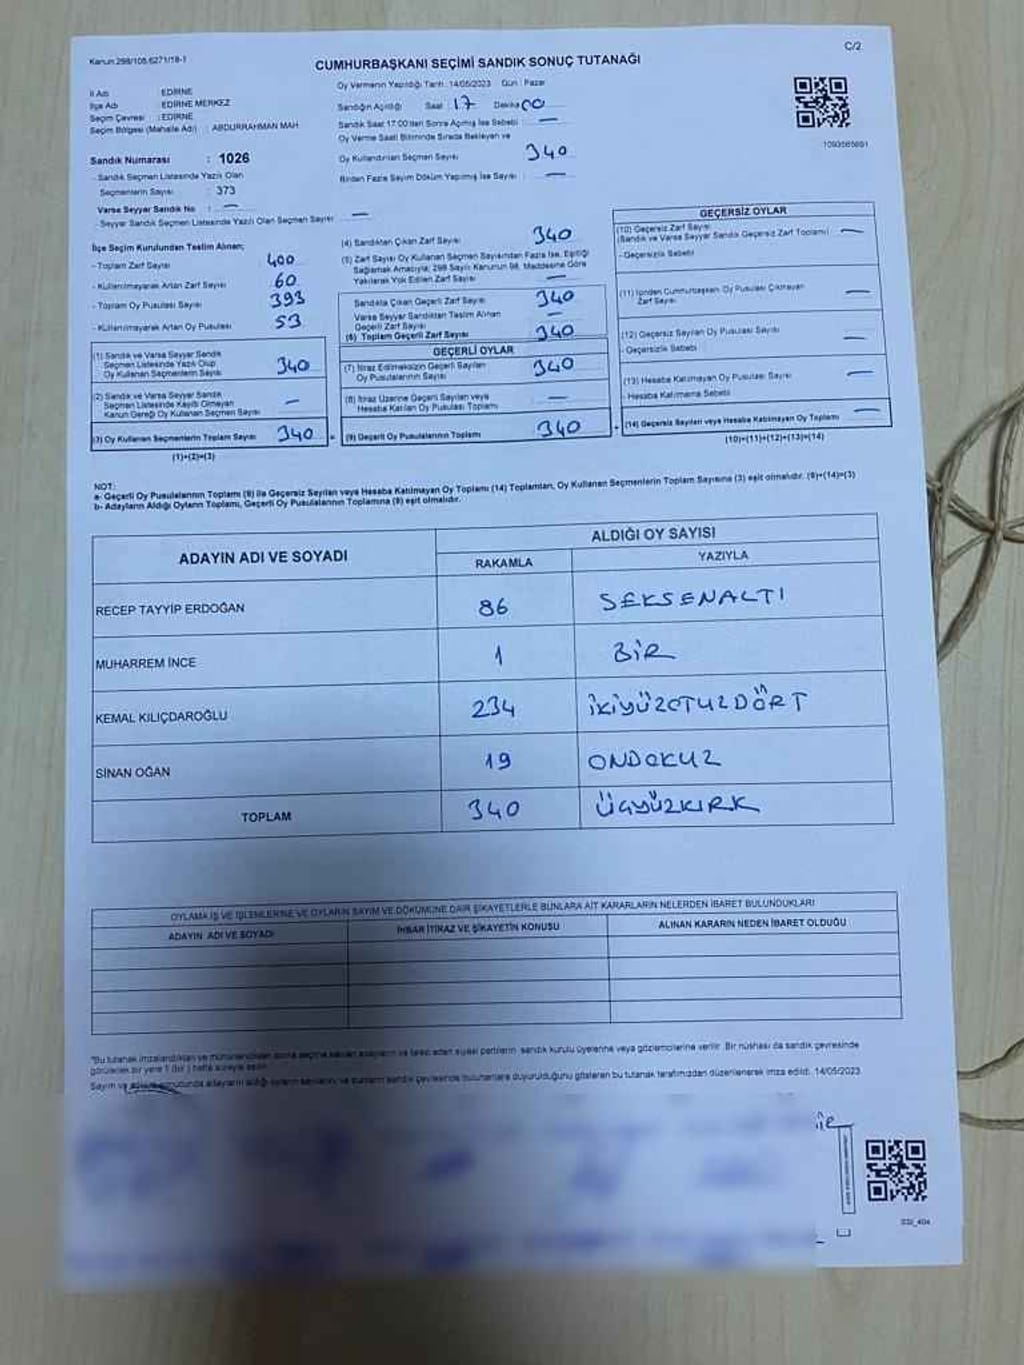 Kanun 298/105.6271/18-1
C/2
CUMHURBAŞKANI SEÇİMİ SANDIK SONUÇ TUTANAĞI
İl Adı : EDİRNE
İlçe Adı : EDİRNE MERKEZ
Seçim Çevresi : EDİRNE
Seçim Bölgesi (Mahalle Adı) : ABDURRAHMAN MAH
Sandık Numarası : 1026
- Sandık Seçmen Listesinde Yazılı Olan
Seçmenlerin Sayısı : 373
Varsa Seyyar Sandık No : —
- Seyyar Sandık Seçmen Listesinde Yazılı Olan Seçmen Sayısı —
Oy Vermenin Yapıldığı Tarih : 14/05/2023 Gün : Pazar
Sandığın Açıldığı Saat 17 Dakika 00
Sandık Saat 17:00'den Sonra Açılmış İse Sebebi : —
Oy Verme Saati Bitiminde Sırada Bekleyen ve
Oy Kullandırılan Seçmen Sayısı 340
Birden Fazla Sayım Döküm Yapılmış İse Sayısı : —
1093565691
İlçe Seçim Kurulundan Teslim Alınan;
- Toplam Zarf Sayısı 400
- Kullanılmayarak Artan Zarf Sayısı 60
- Toplam Oy Pusulası Sayısı 393
- Kullanılmayarak Artan Oy Pusulası 53
(1) Sandık ve Varsa Seyyar Sandık
Seçmen Listesinde Yazılı Olup
Oy Kullanan Seçmenlerin Sayısı 340
(2) Sandık ve Varsa Seyyar Sandık
Seçmen Listesinde Kaydı Olmayan
Kanun Gereği Oy Kullanan Seçmen Sayısı —
(3) Oy Kullanan Seçmenlerin Toplam Sayısı 340
(1)+(2)=(3)
(4) Sandıktan Çıkan Zarf Sayısı 340
(5) Zarf Sayısı Oy Kullanan Seçmen Sayısından Fazla İse, Eşitliği
Sağlamak Amacıyla; 298 Sayılı Kanunun 98. Maddesine Göre
Yakılarak Yok Edilen Zarf Sayısı —
Sandıkta Çıkan Geçerli Zarf Sayısı 340
Varsa Seyyar Sandıktan Teslim Alınan
Geçerli Zarf Sayısı —
(6) Toplam Geçerli Zarf Sayısı 340
GEÇERLİ OYLAR
(7) İtiraz Edilmeksizin Geçerli Sayılan
Oy Pusulalarının Sayısı 340
(8) İtiraz Üzerine Geçerli Sayılan veya
Hesaba Katılan Oy Pusulası Toplamı —
= (9) Geçerli Oy Pusulalarının Toplamı 340
GEÇERSİZ OYLAR
(10) Geçersiz Zarf Sayısı
(Sandık ve Varsa Seyyar Sandık Geçersiz Zarf Toplamı) —
- Geçersizlik Sebebi
(11) İçinden Cumhurbaşkanı Oy Pusulası Çıkmayan
Zarf Sayısı —
(12) Geçersiz Sayılan Oy Pusulası Sayısı —
- Geçersizlik Sebebi
(13) Hesaba Katılmayan Oy Pusulası Sayısı —
- Hesaba Katılmama Sebebi
+ (14) Geçersiz Sayılan veya Hesaba Katılmayan Oy Toplamı —
(10)+(11)+(12)+(13)=(14)
NOT:
a- Geçerli Oy Pusulalarının Toplamı (9) ile Geçersiz Sayılan veya Hesaba Katılmayan Oy Toplamı (14) Toplamları, Oy Kullanan Seçmenlerin Toplam Sayısına (3) eşit olmalıdır. (9)+(14)=(3)
b- Adayların Aldığı Oyların Toplamı, Geçerli Oy Pusulalarının Toplamına (9) eşit olmalıdır.
ADAYIN ADI VE SOYADI ALDIĞI OY SAYISI
RAKAMLA YAZIYLA
RECEP TAYYİP ERDOĞAN 86 SEKSENALTI
MUHARREM İNCE 1 BİR
KEMAL KILIÇDAROĞLU 234 İKİYÜZOTUZDÖRT
SİNAN OĞAN 19 ONDOKUZ
TOPLAM 340 ÜÇYÜZKIRK
OYLAMA İŞ VE İŞLEMLERİNE VE OYLARIN SAYIM VE DÖKÜMÜNE DAİR ŞİKAYETLERLE BUNLARA AİT KARARLARIN NELERDEN İBARET BULUNDUKLARI
ADAYIN ADI VE SOYADI İHBAR İTİRAZ VE ŞİKAYETİN KONUSU ALINAN KARARIN NEDEN İBARET OLDUĞU
"Bu tutanak imzalandıktan ve mühürlendikten sonra seçime katılan adayların ve talep eden siyasi partilerin sandık kurulu üyelerine veya gözlemcilerine verilir. Bir nüshası da sandık çevresinde
görülecek bir yere 1 (bir) hafta süreyle asılır.
Sayım ve sonucunda adayların aldığı oyların sandık çevresinde bulunanlara duyurulduğunu gösteren bu tutanak tarafımızdan düzenlenerek imza edildi. 14/05/2023